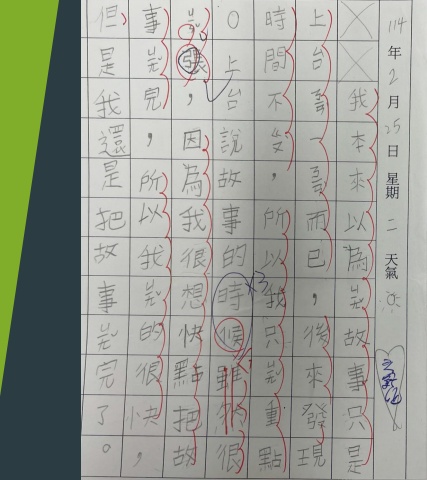 114年2月25日 星期二 天氣
我本來以為說故事只是
上台說一說而已，後來發現
時間不多，所以我只說重點
。上台說故事的時候雖然很
緊張，因為我很想快點把故
事說完，所以我說的很快，
但是我還是把故事說完了。